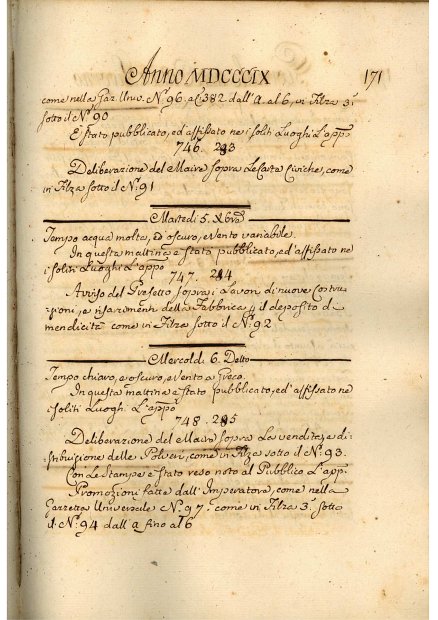 Anno MDCCCIX 171
come nella Gaz. Univ. N.º 96. a C. 382. dall'A. al 6, in Filza 3.ª
sotto il N.º 90
E stato pubblicato, ed affissato ne i soliti Luoghi L'app.º
746. 283
Deliberazione del Maire sopra Le Carta Civiche, come
in Filza sotto il N.º 91
Martedi 5. Xbre
Tempo acqua molta, ed oscuro, e vento variabile.
In questa mattina e stato pubblicato, ed'affissato ne
i soliti Luoghi L'app.º
747. 284
Avviso del Prefetto sopra i Lavori di nuove Costru-
zioni, e risarcimenti della Fabbrica p il deposito di
mendicità come in Filza sotto il N.º 92.
Mercoldi 6. Detto
Tempo chiaro, e oscuro, e vento a Greco.
In questa mattina e stato pubblicato, ed'affissato ne
i soliti Luoghi L'app.º
748. 285
Deliberazione del Maire sopra La vendita, e di-
stribuzione delle Polveri, come in Filza sotto il N.º 93.
Con Le Stampe e stato reso noto al Pubblico L'app.
Promozioni fatte dall'Imperatore, come nella
Gazzetta Universale N.º 97. come in Filza 3.ª sotto
il N.º 94 dall'a fino al 6